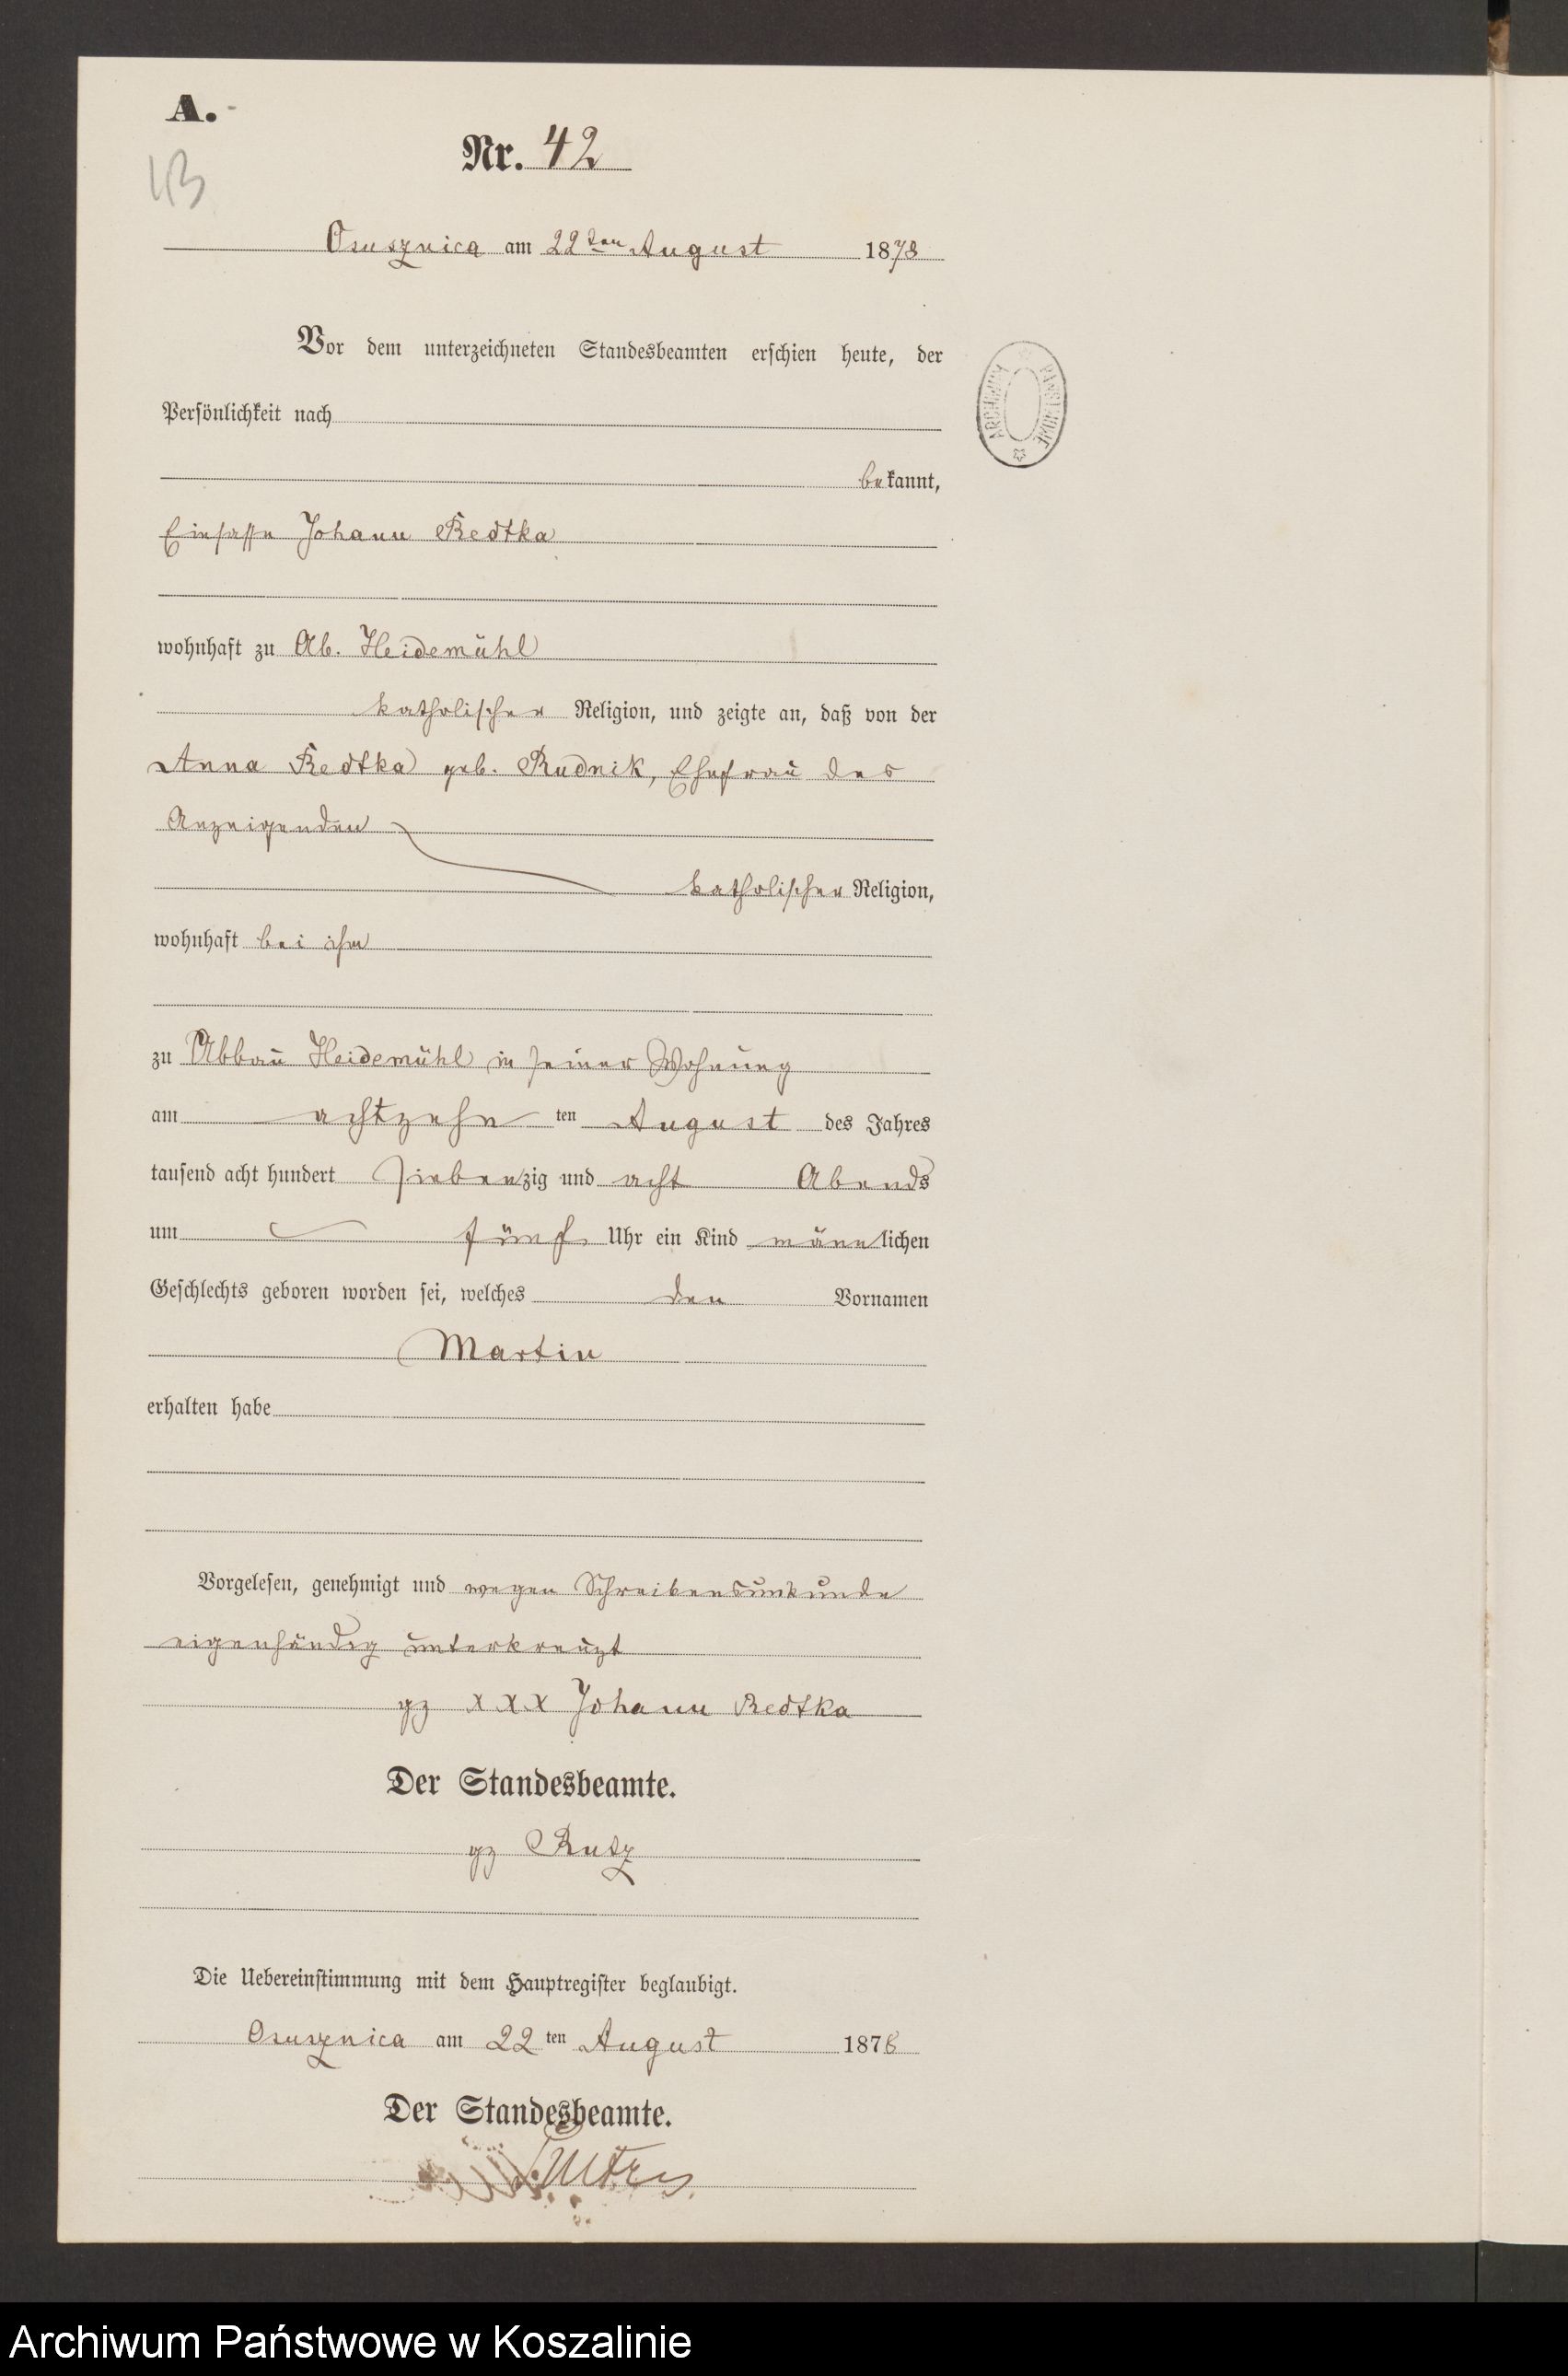 A.
43
Nr. 42
Osusznica am 22ten August 1878
Vor dem unterzeichneten Standesbeamten erschien heute, der
Persönlichkeit nach
bekannt,
Einsasse Johann Redtka
wohnhaft zu Ab. Heidemühl
katholischer Religion, und zeigte an, daß von der
Anna Redtka geb. Rudnik, Ehefrau des
Anzeigenden
katholischer Religion,
wohnhaft bei ihm
zu Abbau Heidemühl in seiner Wohnung
am achtzehn ten August des Jahres
tausend acht hundert siebenzig und acht Abends
um fünf Uhr ein Kind männlichen
Geschlechts geboren worden sei, welches den Vornamen
Martin
erhalten habe
Vorgelesen, genehmigt und wegen Schreibensunkunde
eigenhändig unterkreuzt
gz xxx Johann Redtka
Der Standesbeamte.
gz Rutz
Die Uebereinstimmung mit dem Hauptregister beglaubigt.
Osusznica am 22 ten August 1878
Der Standesbeamte.
ARCHIWUM PAŃSTWOWE
Archiwum Państwowe w Koszalinie